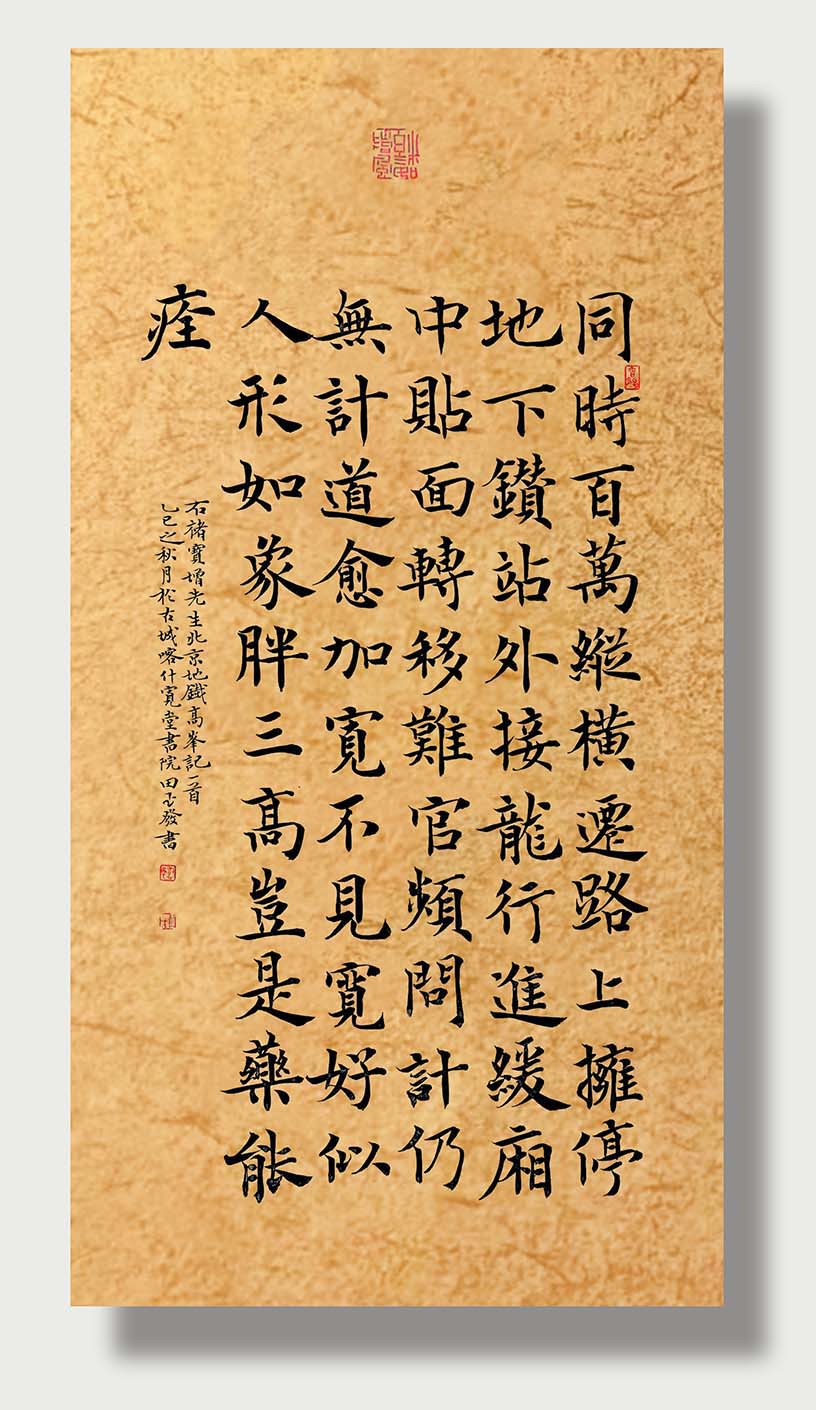 同時百萬縱橫遷路上擁停
地下鑽站外接龍行進緩廂
中貼面轉移難官頻問計仍
無計道愈加寬不見寬好似
人形如象胖三高豈是藥能
痊
右褚寶增先生北京地鐵高峯記一首
乙巳之秋月於古城喀什寬堂書院田玉發書